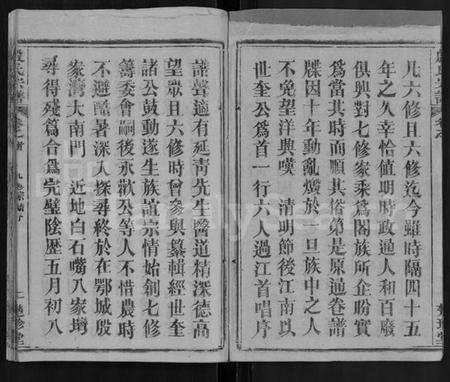 凡六修且六修迄今顯時隔四十五
年之久幸恰值明時政通人和百廢
俱興對七修家乘爲閤族所企盼實
爲當其時面順其俗弟是原通卷譜
牒因十年動亂燬於一旦族中之人
不免望洋興嘆 清明節後江南以
世奎公爲首一行六人過江首唱序
譜聲適有延靑先生醫道精深德高
望眾且六修時曾參與纂輯經世奎
諸公鼓動遂生族誼宗情始創七修
籌委會嗣後永歡公等人不惜農時
不避酷暑深入探尋終於在鄂城殷
家灣大南門 近地白石嘴八家塆
尋得殘篇合爲完璧陰歷五月初八